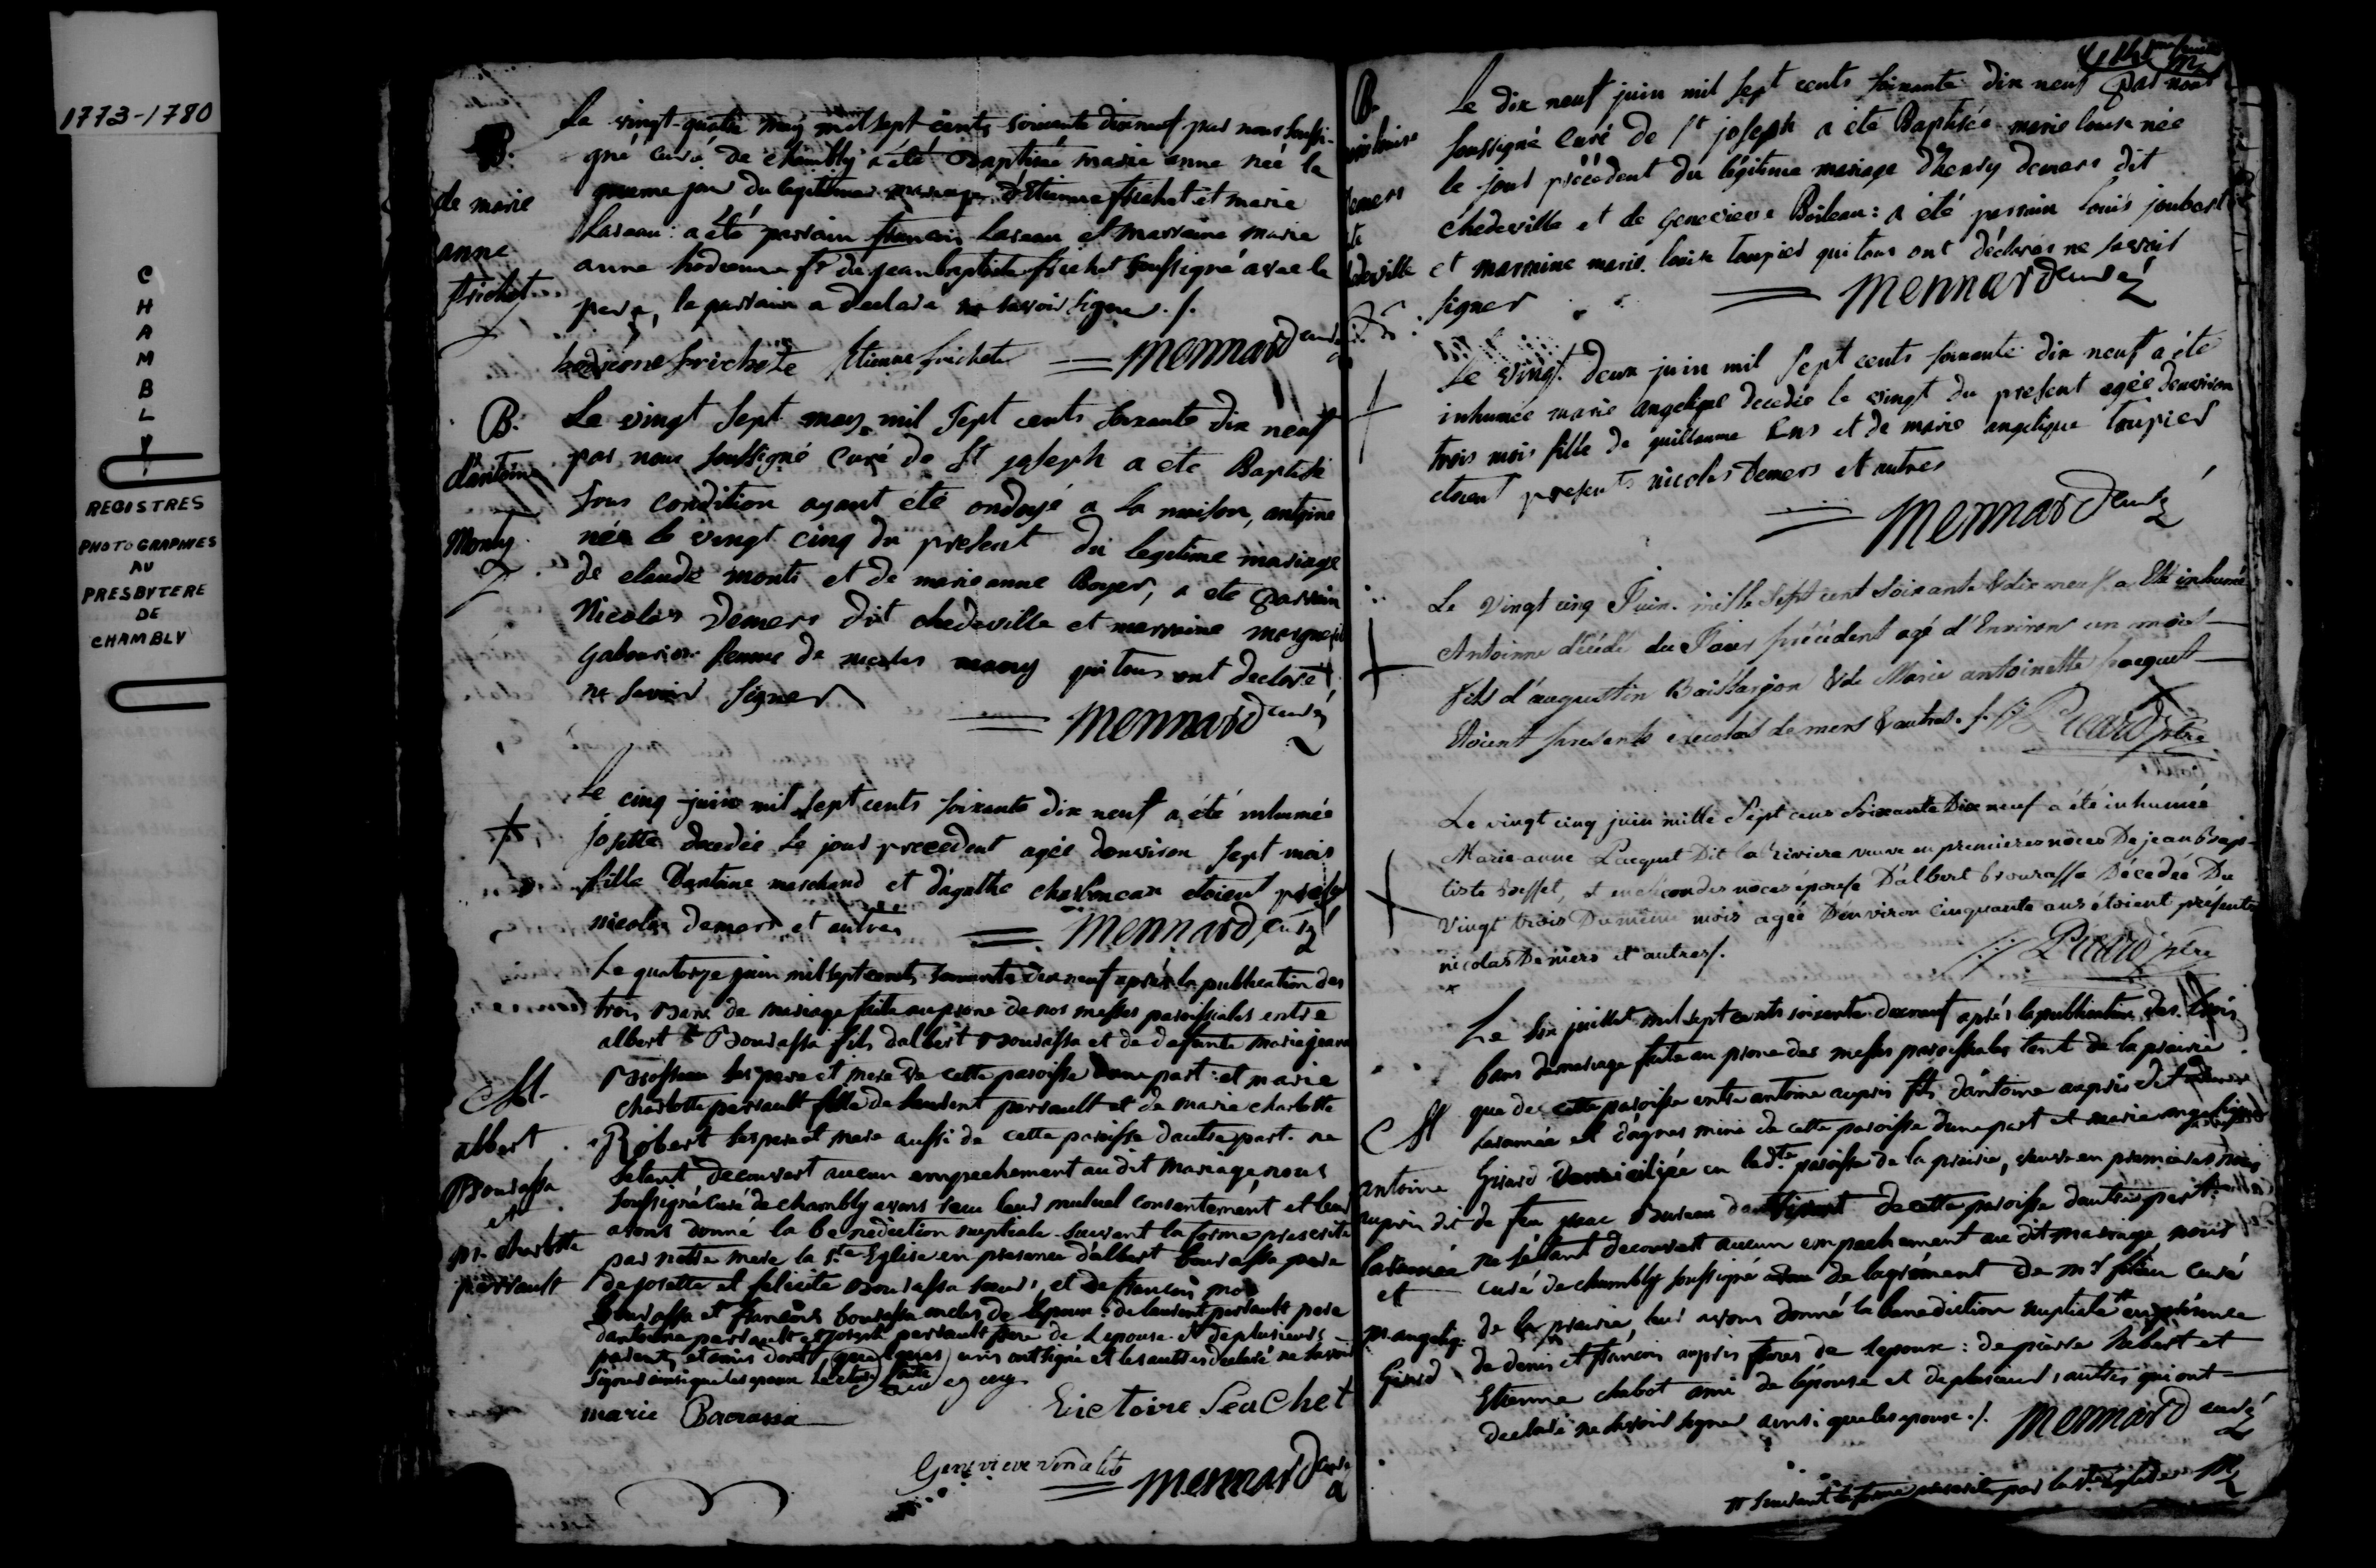 1773-1780
CHAMBLY
REGISTRES
PHOTOGRAPHIES
AU
PRESBYTERE
DE
CHAMBLY
B.
de marie
anne
frichet
Le vingt-quatre may mil sept cents soixante dixneuf par nous soussi-
gné curé de chambly a été Baptisée marie anne née le
meme jour du legitime mariage d'Etienne frichet et marie
Lareau: a été parrain françois Lareau et marraine marie
anne fe de jean baptiste frichet soussigné avec le
pere, le parrain a declaré ne savoir signer ./.
frichete Etienne frichete = Mennard curé
B.
d'antoine
Monty
Le vingt sept may mil sept cents soixante dix neuf
par nous soussigné curé de St joseph a ete Baptisé
sous condition ayant été ondoyé a la maison, antoine
née le vingt cinq du present du legitime mariage
de claude monti et de marie anne Boyer, a ete parrain
Nicolas Demers dit chedeville et marraine
femme de nicolas many qui tous ont declaré
ne savoir signer
= Mennard curé
Le cinq juin mil sept cents soixante dix neuf a été inhumée
josette decedée le jour precedent agée denviron sept mois
fille D'antoine marchand et d'agathe charboneau etoient
nicolas demers et autres = Mennard curé
M.
albert
Bourassa
et
m. charlotte
perrault
Le quatorze juin mil sept cents soixante dixneuf après la publication des
trois Bans de mariage faite au prone de nos messes paroissiales entre
albert Bourassa fils dalbert Bourassa et de defunte marie jeanne
ses pere et mere de cette paroisse dune part: et marie
charlotte perrault fille de laurent perrault et de marie charlotte
Robert ses pere et mere aussi de cette paroisse dautre part. ne
setant decouvert aucun empechement au dit mariage, nous
soussigné curé de chambly avons reçu leur mutuel consentement et leur
avons donné la benediction nuptiale suivant la forme prescrite
par notre mere la Ste Eglise en presence d'albert bourassa pere
de josette et felicité Bourassa sœurs, et de françois
Bourassa et françois bourassa oncles de lepoux: de laurent perrault pere
dantoine perrault et joseph perrault frere de lepouse et de plusieurs
parents et amis dont quelques uns ont signé et les autres declaré ne savoir
signer ainsi que les epoux lecture faite
marie Bourassa Victoire Feuchet
Genevieve = Mennard curé
B.
marie louise
demers
dit
chedeville
Le dix neuf juin mil sept cents soixante dix neuf par nous
soussigné curé de St joseph a été Baptisée marie louise née
le jour précédent du légitime mariage d'henry demers dit
chedeville et de Genevieve Boileau: a été parrain louis joubert
et marraine marie louise toupier qui tous ont déclarés ne savoir
signer = Mennard curé
Le vingt deux juin mil sept cents soixante dix neuf a été
inhumée marie angelique decedée le vingt du present agée denviron
trois mois fille de guillaume et de marie angelique toupier
etoient presents nicolas Demers et autres
= Mennard curé
Le vingt cinq Juin mille sept cent soixante & dix neuf a été inhumé
Antoinne décédé du Jour précédent agé d'Environ un mois
fils d'augustin Baillargon & de Marie antoinette pacquet
Etoient presents nicolas demers & autres ./. Picard ptre
Le vingt cinq juin mille sept cens soixante Dix neuf a été inhumée
Marie-anne Pacquet Dit la Riviere veuve en premieres nôces De jean Bap-
tiste , et en secondes nôces épouse D'albert bourassa Décedée Du
vingt trois Du même mois agée D'environ cinquante ans étoient présents
nicolas Demers et autres /.
Picard ptre
M
antoine
auprin dit
laramée
et
m. angeliq.
Girard
Le six juillet mil sept cents soixante dixneuf après la publication des trois
bans de mariage faite au prone des messes paroissiales tant de la prairie
que de cette paroisse entre antoine auprin fils d'antoine auprin dit
laramée et d'agnes de cette paroisse dune part et marie angelique
Girard domiciliée en ladte paroisse de la prairie, veuve en premieres noces
de feu Bureau de cette paroisse dautre part
ne sétant decouvert aucun empechement au dit mariage nous
curé de chambly soussigné de lagrément de mr filiau curé
de la prairie, leur avons donné la benediction nuptiale # en présence
de denis et françois auprin freres de lepoux: de pierre hebert et
Etienne chabot ami de lépouse et de plusieurs autres qui ont
declaré ne savoir signer ainsi que les epoux ./. Mennard curé
# suivant la forme prescrite par la Ste Eglise M